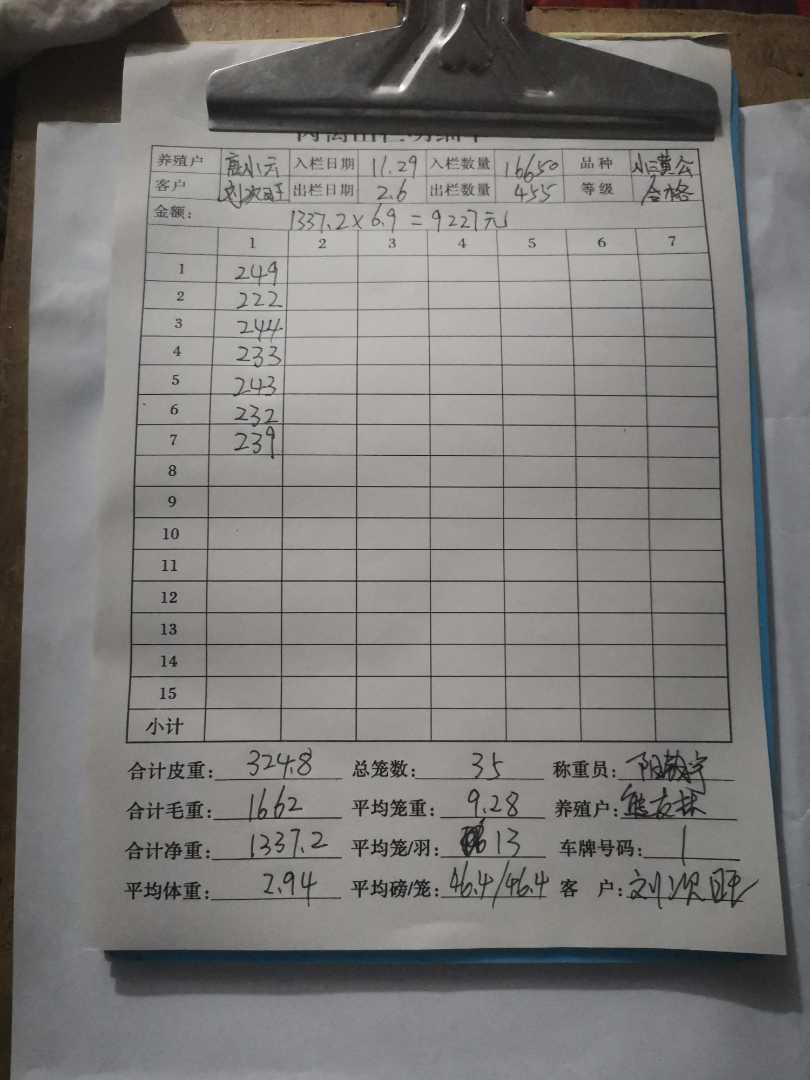 养殖户 唐小云 入栏日期 11.29 入栏数量 16650 品种 小三黄公
客户 刘次旺 出栏日期 2.6 出栏数量 455 等级 合格
金额: 1337.2×6.9=9227元
1 2 3 4 5 6 7
1 249
2 222
3 244
4 233
5 243
6 232
7 239
8
9
10
11
12
13
14
15
小计
合计皮重: 324.8 总笼数: 35 称重员:
合计毛重: 1662 平均笼重: 9.28 养殖户:
合计净重: 1337.2 平均笼/羽: 13 车牌号码: 1
平均体重: 2.94 平均磅/笼: 46.4/46.4 客 户: 刘次旺